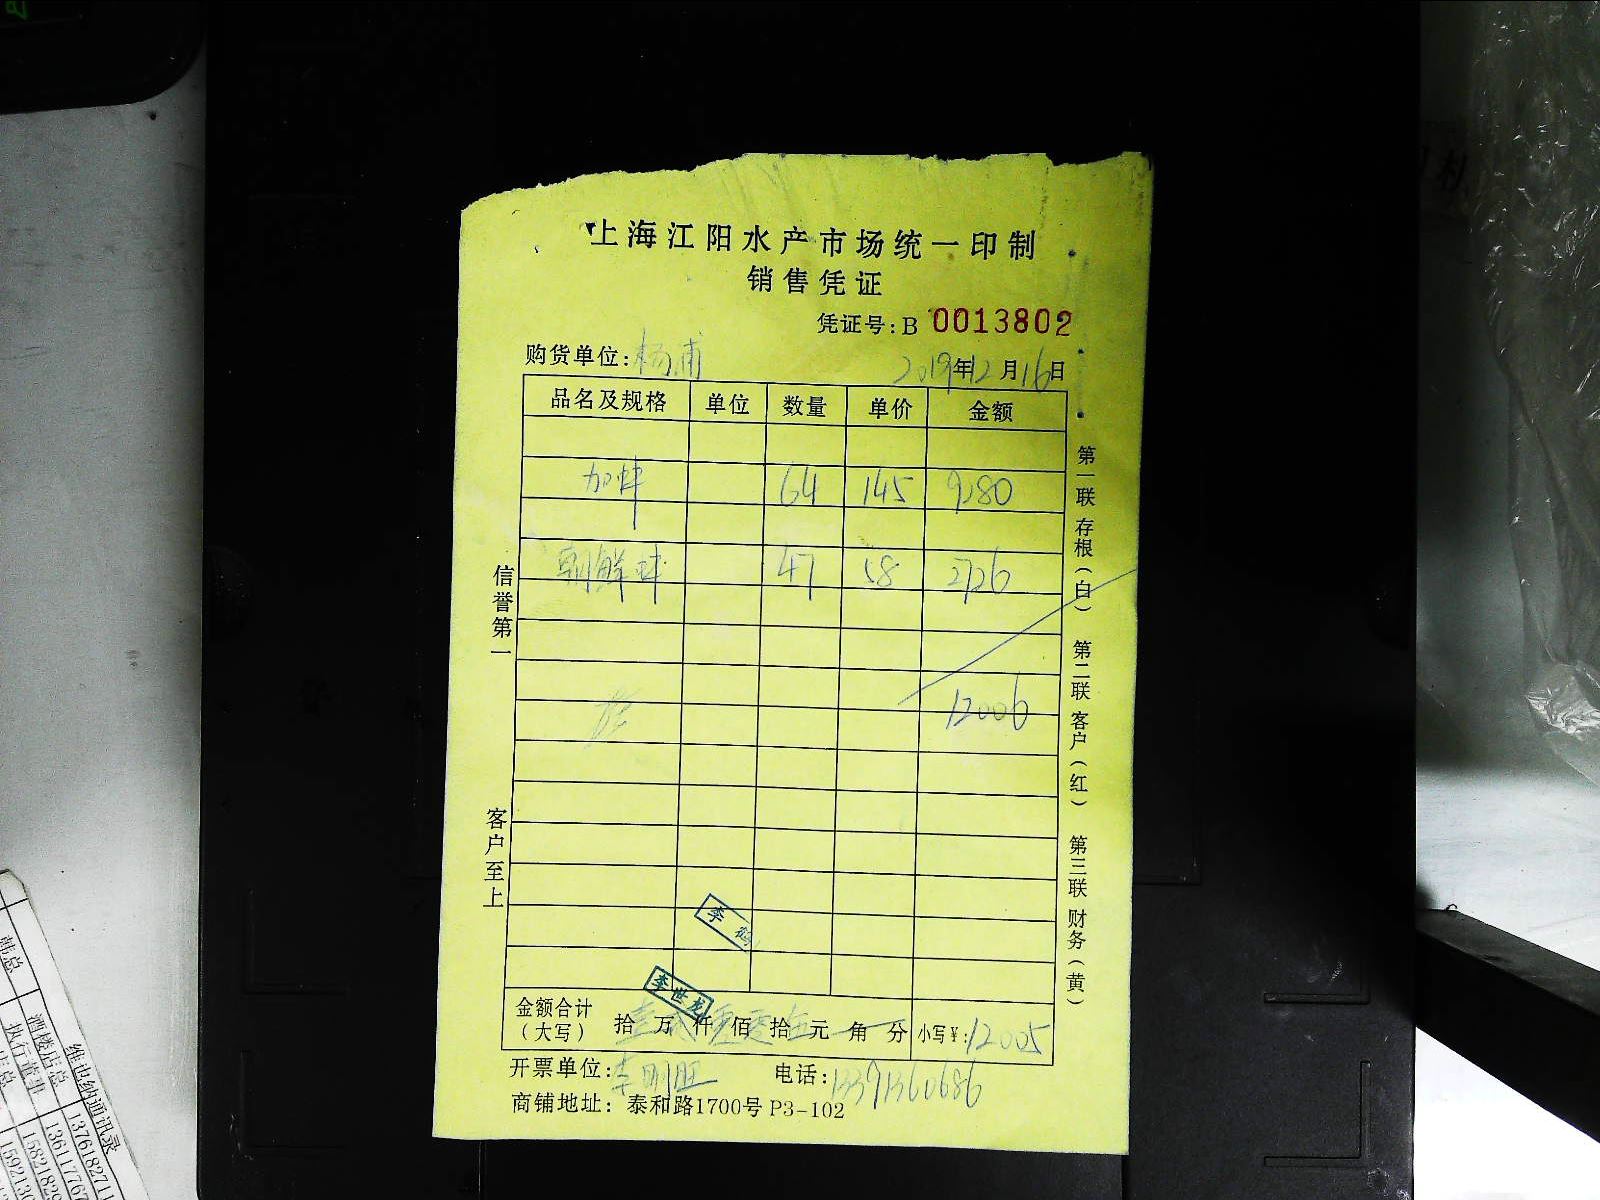 上海江阳水产市场统一印制
销售凭证
凭证号:B 0013802
购货单位:杨浦 2019年12月16日
品名及规格 单位 数量 单价 金额
加蚌 64 145 9280
朝鲜蚌 47 58 2726
12006
李鹤
李世龙
金额合计(大写) 拾壹万贰仟零佰零拾伍元 角 分 小写¥:12005
开票单位:李刚旺 电话:13391360686
商铺地址: 泰和路1700号 P3-102
信誉第一
客户至上
第一联 存根(白) 第二联 客户(红) 第三联 财务(黄)
维也纳通讯录
韩总
酒楼店总
执行董事